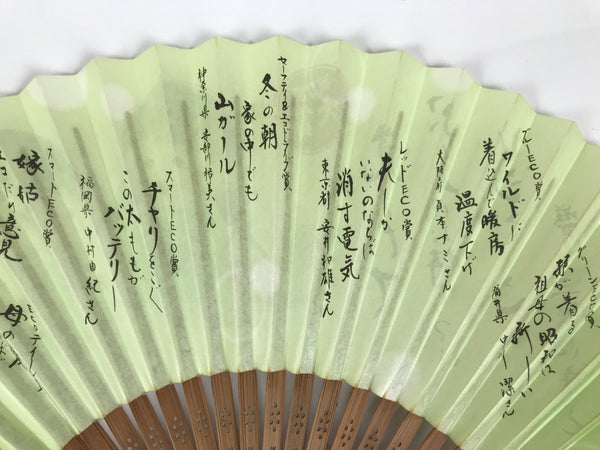 グリーンECO賞
孫が着る
祖母の昭和は
新しい
ブルーECO賞
ワイルドに
着込んで暖房
温度下げ
大阪府 貞本ナミさん
レッドECO賞
夫しか
いないのならば
消す電気
東京都 安井和雄さん
セーフティ&エコドライブ賞
冬の朝
家の中でも
山ガール
スマートECO賞
チャリをこぐ
この太ももが
バッテリー
福岡県 中村由紀さん
スマートECO賞
嫁姑
意見
母の